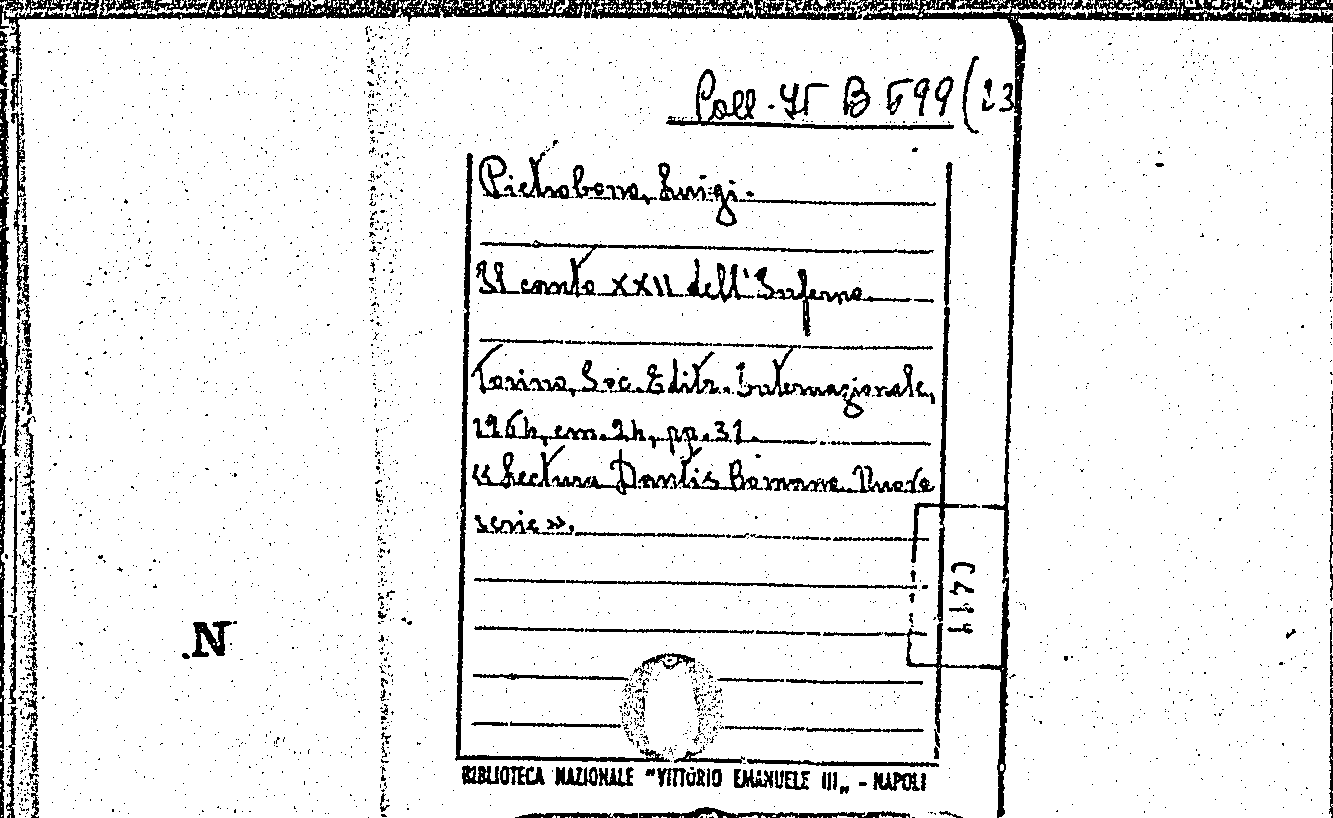 Coll. It B 599 (23
Pietrobono, Luigi.
Il canto XXII dell'Inferno.
Torino, Soc. Editr. Internazionale,
1964, cm. 24, pp. 31.
«Lectura Dantis Romana. Nuova
serie».
C411
.N
BIBLIOTECA NAZIONALE "VITTORIO EMANUELE III„ - NAPOLI